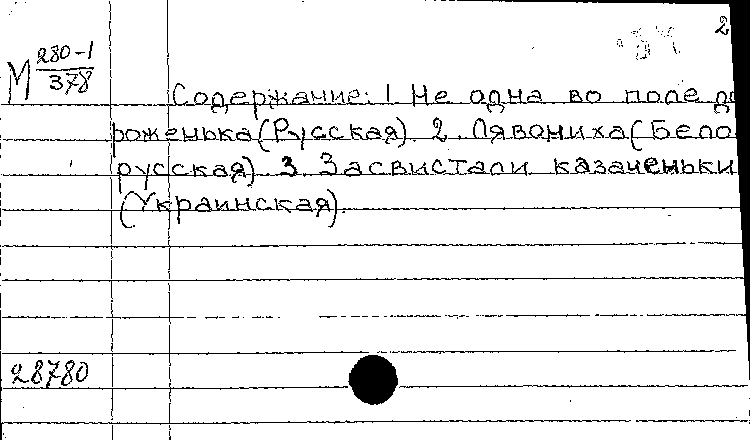 2
М 280-1
378
Содержание: 1 Не одна во поле до
роженька (Русская). 2. Лявониха (Бело
русская) 3 Засвистали казаченьки
(Украинская).
28780